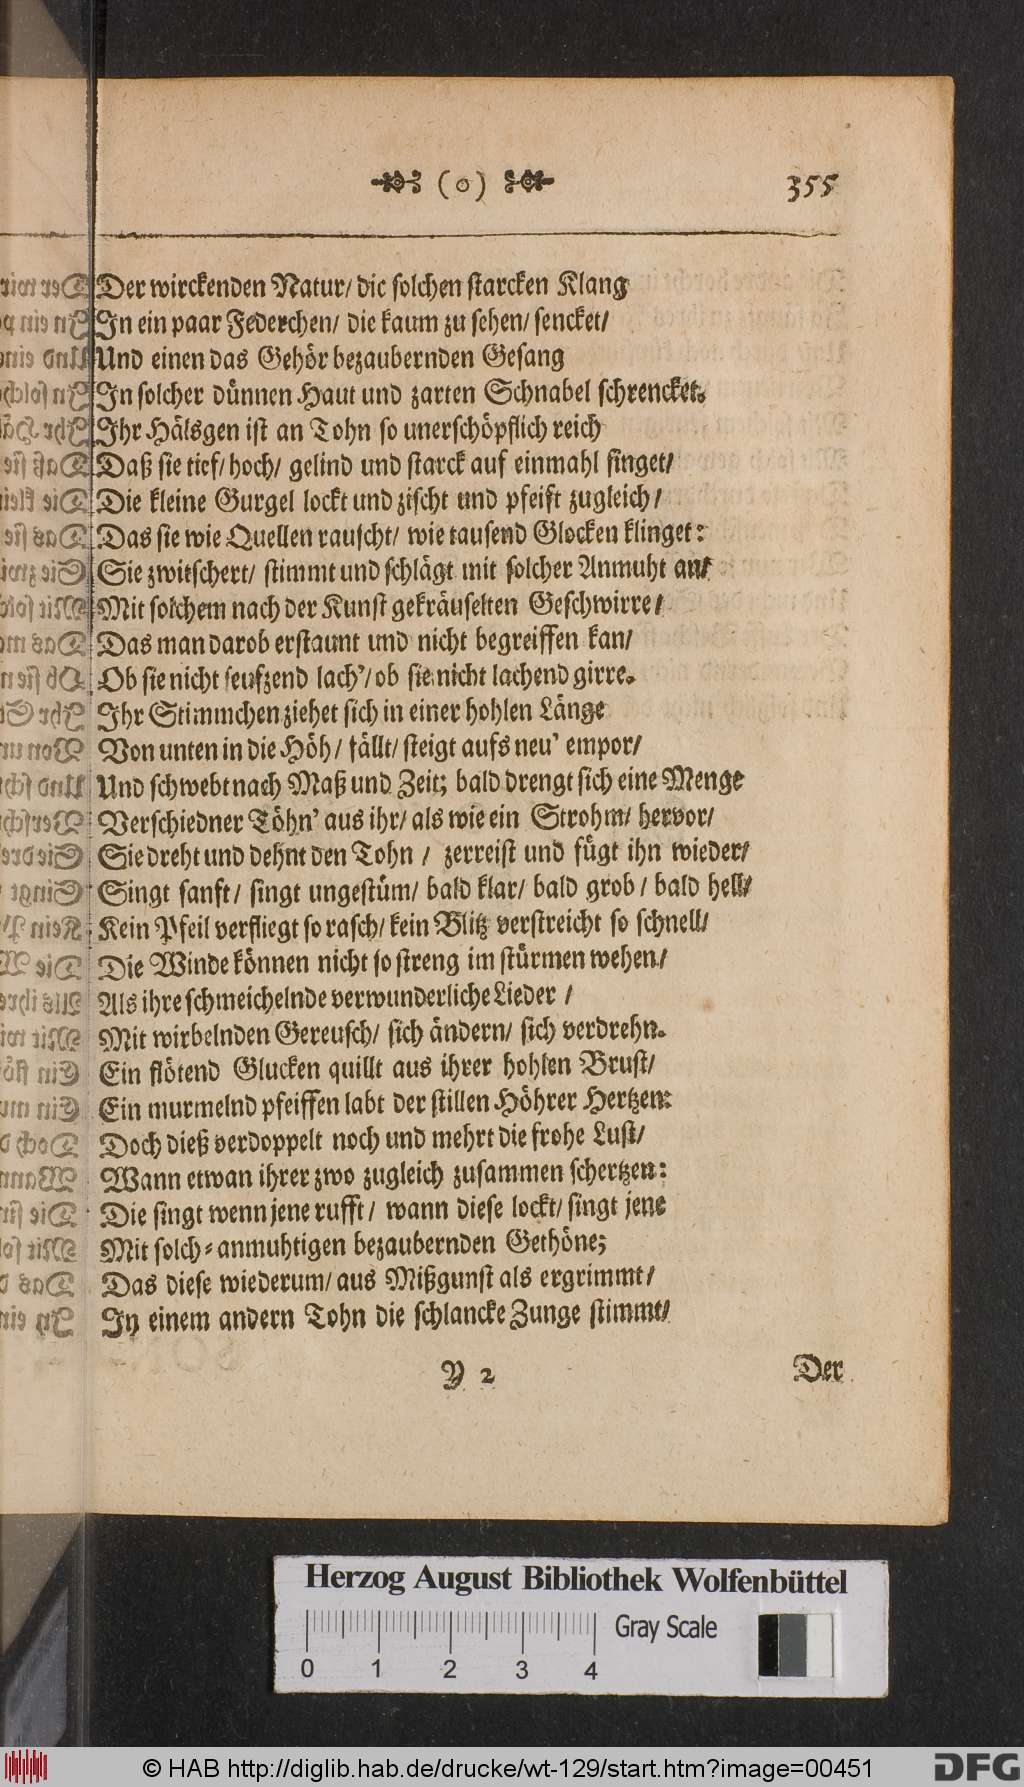 (o) 355
Der wirckenden Natur/ die solchen starcken Klang
In ein paar Federchen/ die kaum zu sehen/ sencket/
Und einen das Gehör bezaubernden Gesang
In solcher dünnen Haut und zarten Schnabel schrencket.
Ihr Hälsgen ist an Tohn so unerschöpflich reich
Daß sie tief/ hoch/ gelind und starck auf einmahl singet/
Die kleine Gurgel lockt und zischt und pfeift zugleich/
Das sie wie Quellen rauscht/ wie tausend Glocken klinget:
Sie zwitschert/ stimmt und schlägt mit solcher Anmuht an/
Mit solchem nach der Kunst gekräuselten Geschwirre/
Das man darob erstaunt und nicht begreiffen kan/
Ob sie nicht seufzend lach'/ ob sie nicht lachend girre.
Ihr Stimmchen ziehet sich in einer hohlen Länge
Von unten in die Höh/ fällt/ steigt aufs neu' empor/
Und schwebt nach Maß und Zeit; bald drengt sich eine Menge
Verschiedner Töhn' aus ihr/ als wie ein Strohm/ hervor/
Sie dreht und dehnt den Tohn / zerreist und fügt ihn wieder/
Singt sanft/ singt ungestüm/ bald klar/ bald grob/ bald hell/
Kein Pfeil verfliegt so rasch/ kein Blitz verstreicht so schnell/
Die Winde können nicht so streng im stürmen wehen/
Als ihre schmeichelnde verwunderliche Lieder /
Mit wirbelnden Gereusch/ sich ändern/ sich verdrehn.
Ein flötend Glucken quillt aus ihrer hohlen Brust/
Ein murmelnd pfeiffen labt der stillen Höhrer Hertzen:
Doch dieß verdoppelt noch und mehrt die frohe Lust/
Wann etwan ihrer zwo zugleich zusammen schertzen:
Die singt wenn jene rufft/ wann diese lockt/ singt jene
Mit solch-anmuhtigen bezaubernden Gethöne;
Das diese wiederum/ aus Mißgunst als ergrimmt/
In einem andern Tohn die schlancke Zunge stimmt/
Y 2 Der
Herzog August Bibliothek Wolfenbüttel
Gray Scale
0 1 2 3 4
© HAB http://diglib.hab.de/drucke/wt-129/start.htm?image=00451
DFG